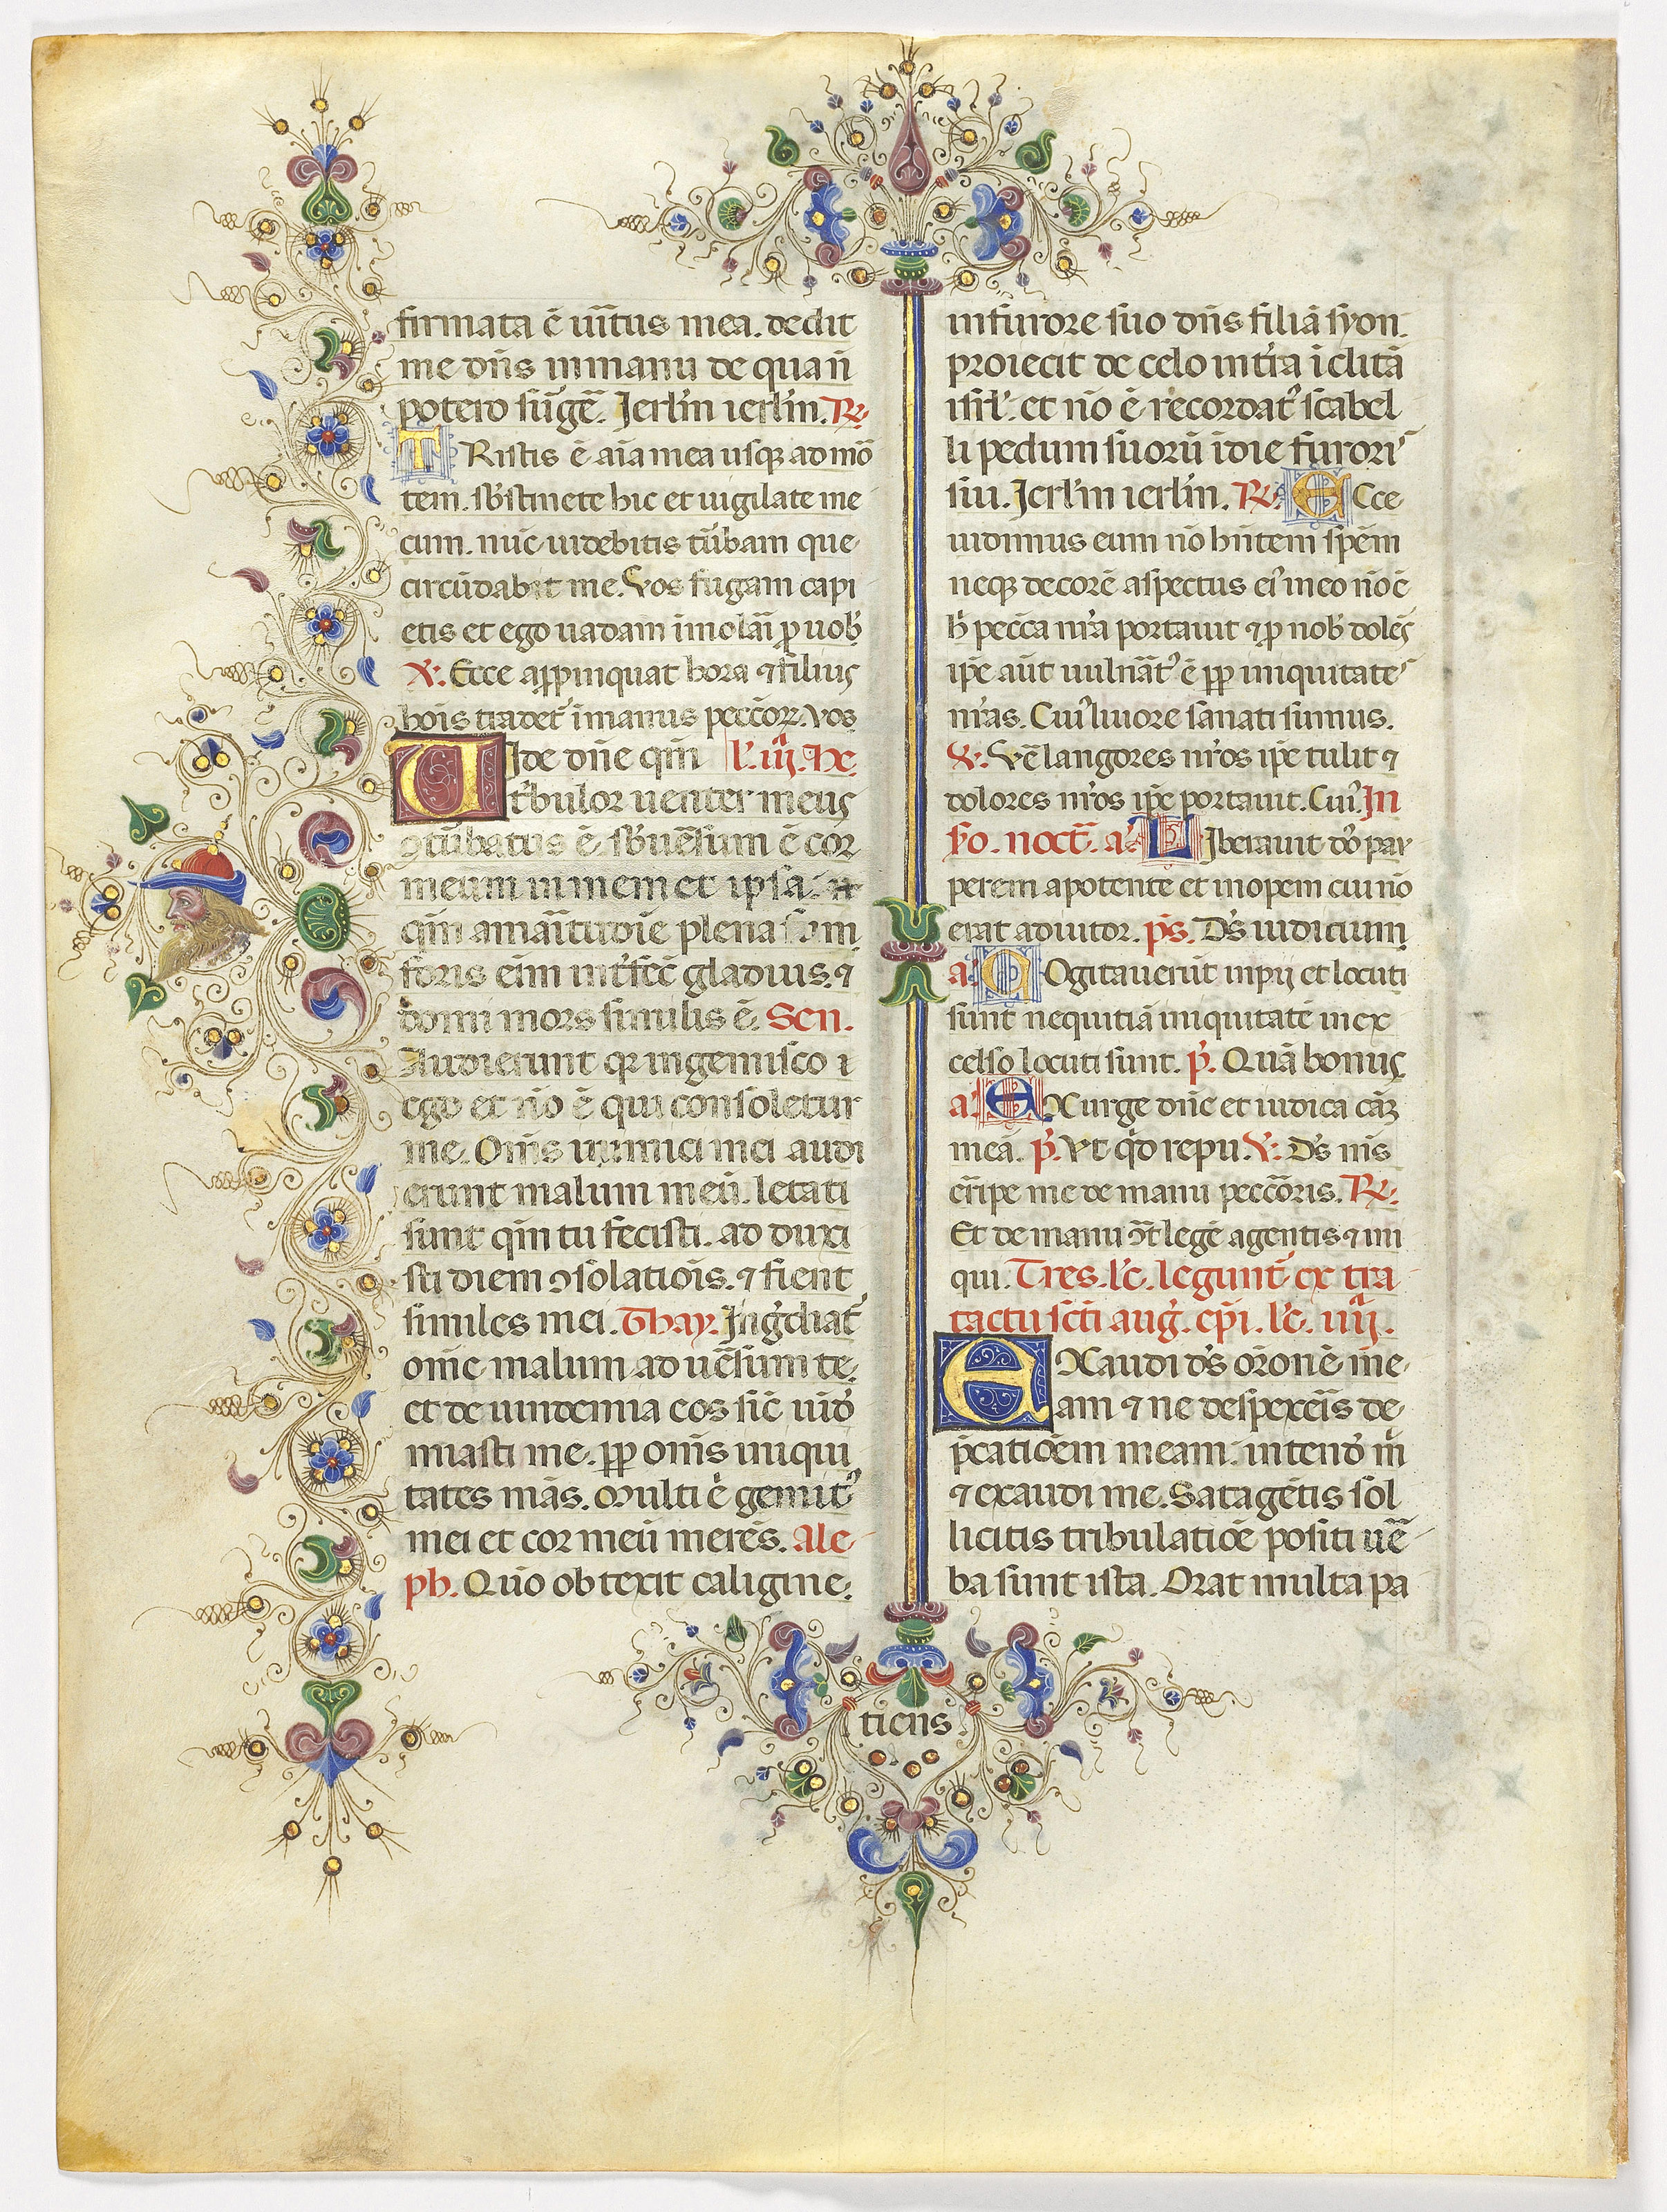 firmata ē uītus mea. dedit
me dn̄s inmanu de qua n̄
potero sūgē. Jerlm̄ ierlm̄. R̶.
TRistis ē aīa mea usq̨ ad mō
tem. sb̄stinete hic et uigilate me
cum. nūc uidebitis tūbam que
circūdabit me. Vos fugam capi
etis et ego uadam imolāi ꝓ uob̄
V. Ecce aꝓpinquat hora ⁊ filius
hois tradet᷑ imanus pecc̄oꝝ. vos
UIde dn̄e qm̄ l'. iij. He.
tˀbulor uenter meus
ꝯtūbatus ē. sb̄uēsum ē cor
meum in mem et ipsa.
qm̄ amāitudīe plena sum
foris eīm int̄fēc gladius. ⁊
domi mors similis ē. Sen.
Audierunt qꝛ ingemisco
ego et nō ē qui consoletur
me. Om̄s inimici mei audi
erunt malum meū. letati
sunt qm̄ tu fecisti. ad duxi
sti diem ꝯsolatiōis. ⁊ fient
similes mei. Thay. Ingˀdiat᷑
om̄e malum ad uēsum te.
et deuindemia eos sic̄ uīd
miasti me. ꝓp om̄s iniqui
tates mās. Multi ē gemit᷒
mei et cor meū merēs. Ale
ph. Quō obtexit caligine
infurore suo dn̄s filiā syon.
proiecit de celo int̄ra īclitā
isrl'. et nō ē recordat᷒ scabel
li pedum suorū īdie furori᷒
sui. Jerlm̄ ierlm̄. R̶. ECce
uidimus eum nō hn̄tem spēm
neq̨ decorē aspectus ei᷒ ī eo nō ē
h̄ pecc̄a nr̄a portauit ⁊ ꝓ nob̄ dolēs
ip̄e aūt uulnāt᷒ ē ꝓp iniquitate᷒
nr̄as. Cui᷒ liuore sanati sumus.
V. Vē langores nr̄os ip̄e tulit ⁊
dolores nr̄os ip̄e portauit. Cui᷒. In
ẏo. noct̄. a. LIberauit dō̄ pau
perem apotente et inopem cui nō
erat adiutor. ps̄. Ds̄ iudicium
a. COgitauerūt inpij et locuti
sunt nequitiā iniquitatē in ex
celso locuti sunt. p̄. Quā bonus
a. EXurge dn̄e et iudica cāꝫ
meā. p̄. Vt qˀd repu. V. Ds̄ m̄s
er̄ipe me de manu pecc̄oris. R̶.
Et de manu ꝯ̄t legē agentis ⁊ ini
qui. Tres. lc̄. legunt᷑ ex tra
tactu scti aug. ep̄i. lc̄. iiij.
EXaudi ds̄ orōnē me
am ⁊ ne despexeīs de
p̄catiōem meam. intend m̄
⁊ exaudi me. Satagētis sol
licitis tribulatiōe positi uē
ba sunt ista. Orat multa pa
tiens